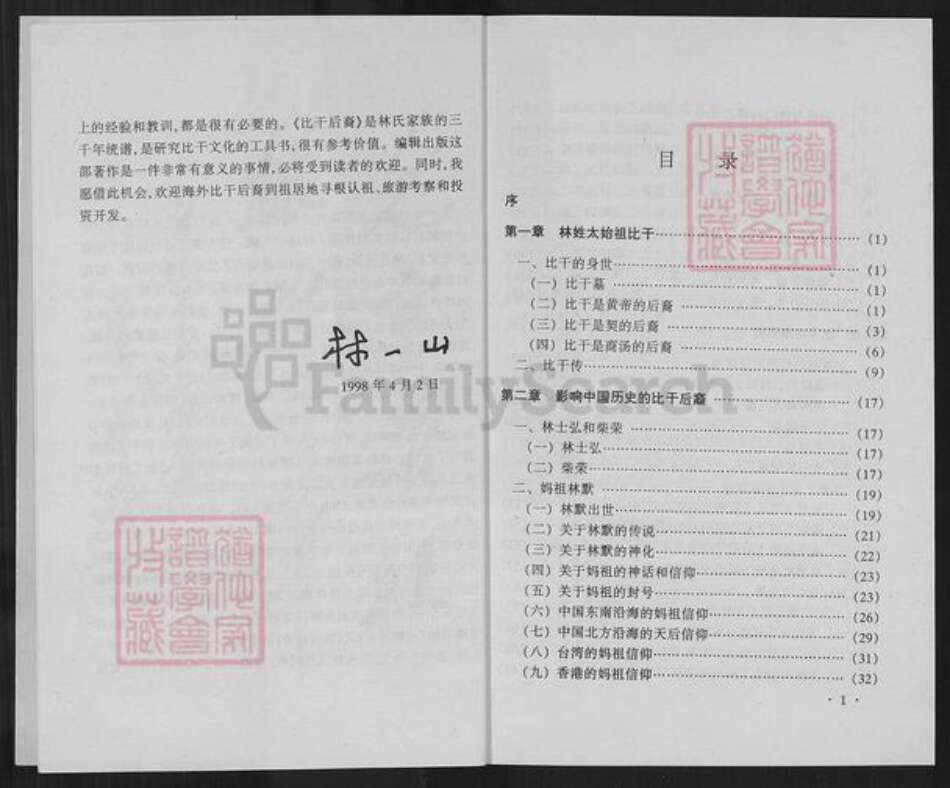 上的经验和教训,都是很有必要的。《比干后裔》是林氏家族的三
千年统谱,是研究比干文化的工具书,很有参考价值。编辑出版这
部著作是一件非常有意义的事情,必将受到读者的欢迎。同时,我
愿借此机会,欢迎海外比干后裔到祖居地寻根认祖、旅游考察和投
资开发。
林一山
1998年4月2日
FamilySearch
目 录
序
第一章 林姓太始祖比干…………………… (1)
一、比干的身世…………………… (1)
(一) 比干墓 …………………… (1)
(二) 比干是黄帝的后裔 …………………… (1)
(三) 比干是契的后裔 …………………… (3)
(四) 比干是商汤的后裔 …………………… (6)
二、比干传…………………… (9)
第二章 影响中国历史的比干后裔 …………………… (17)
一、林士弘和柴荣 …………………… (17)
(一) 林士弘…………………… (17)
(二) 柴荣…………………… (17)
二、妈祖林默 …………………… (19)
(一) 林默出世…………………… (19)
(二) 关于林默的传说…………………… (21)
(三) 关于林默的神化…………………… (22)
(四) 关于妈祖的神话和信仰…………………… (23)
(五) 关于妈祖的封号…………………… (23)
(六) 中国东南沿海的妈祖信仰…………………… (26)
(七) 中国北方沿海的天后信仰…………………… (29)
(八) 台湾的妈祖信仰…………………… (31)
(九) 香港的妈祖信仰…………………… (32)
· 1 ·